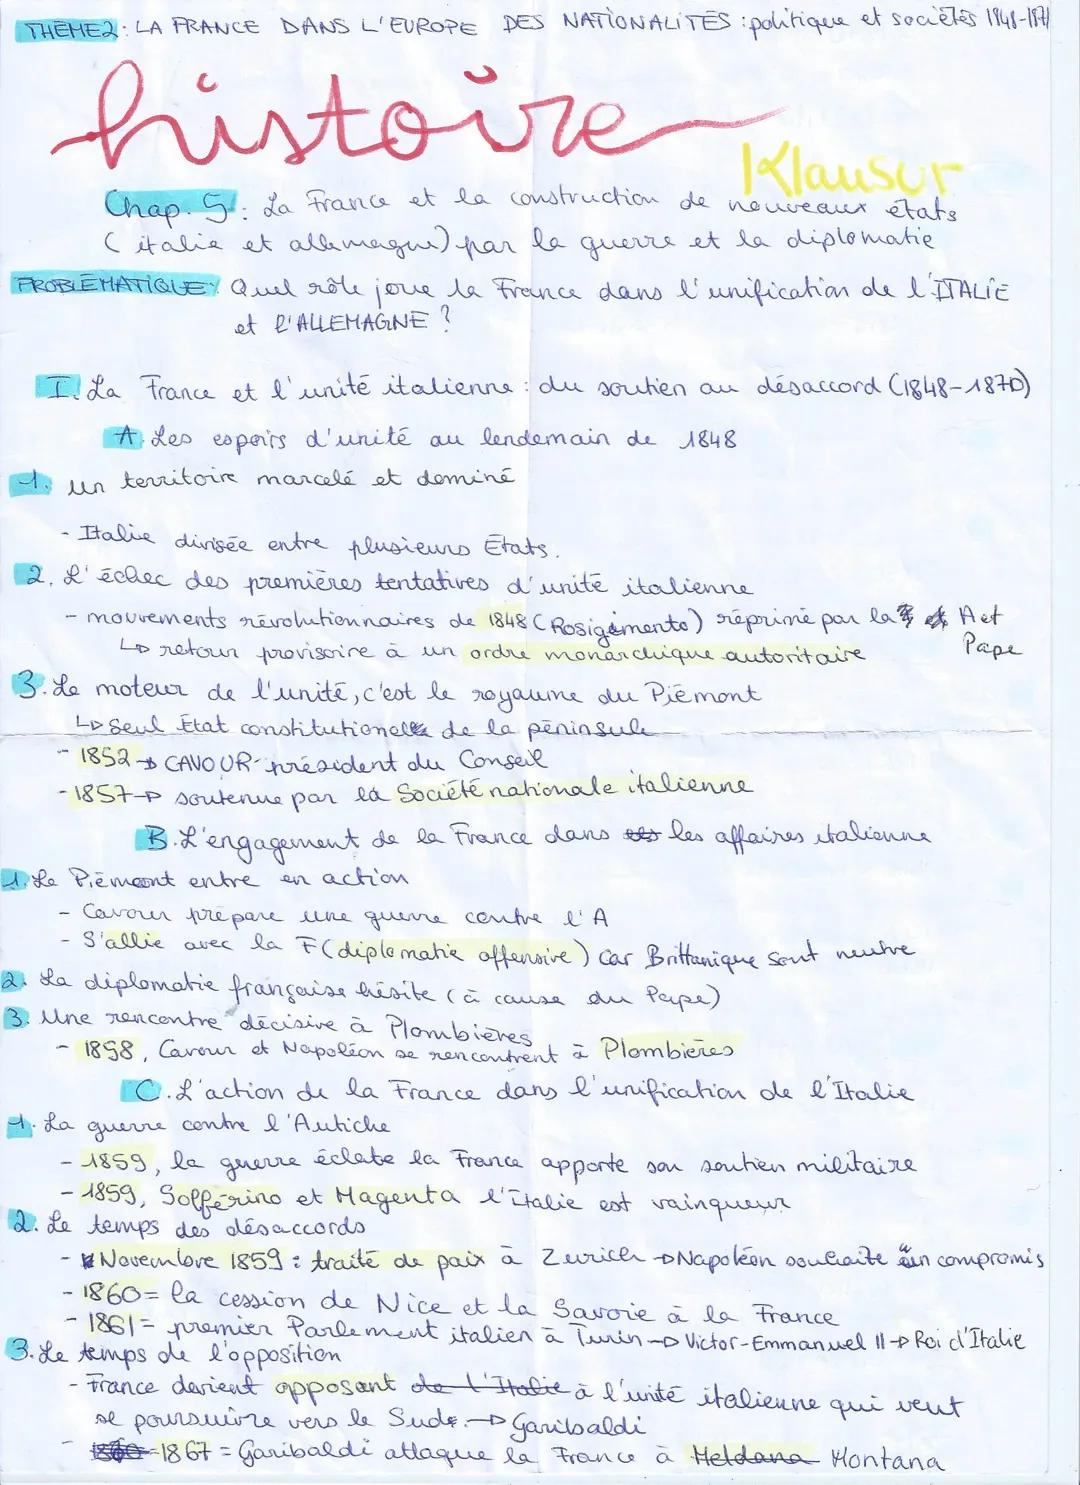 THÈME2: LA FRANCE DANS L'EUROPE DES NATIONALITÉS : politique et sociétés 1848-1871
histoire
Klausur
Chap. 5: La France et la construction de nouveaux états
(italie et allemagne) par la guerre et la diplomatie
PROBLÉMATIQUE: Quel rôle joue la France dans l'unification de l'ITALIE
et l'ALLEMAGNE ?
I. La France et l'unité italienne : du soutien au désaccord (1848-1870)
A. Les espoirs d'unité au lendemain de 1848
1. un territoire marcelé et dominé
- Italie divisée entre plusieurs États.
2. L'échec des premières tentatives d'unité italienne
- mouvements révolutionnaires de 1848 (Rosigimento) réprimé par la A et
Pape
↳ retour provisoire à un ordre monarchique autoritaire
3. Le moteur de l'unité, c'est le royaume du Piémont
↳ Seul État constitutionel de la péninsule
- 1852 → CAVOUR président du Conseil
- 1857 → soutenue par la Société nationale italienne
B. L'engagement de la France dans les affaires italienne
1. Le Piémont entre en action
- Cavour prépare une guerre contre l'A
- S'allie avec la F (diplomatie offensive) car Brittanique sont neutre
2. La diplomatie française hésite (à cause du Pape)
3. Une rencontre décisive à Plombières
- 1858, Cavour et Napoléon se rencontrent à Plombières
C. L'action de la France dans l'unification de l'Italie
1. La guerre contre l'Autiche
- 1859, la guerre éclate la France apporte son soutien militaire
- 1859, Solférino et Magenta l'italie est vainqueur
2. Le temps des désaccords
- Novembre 1859 : traité de paix à Zurich → Napoléon souhaite un compromis
- 1860 = la cession de Nice et la Savoie à la France
- 1861 = premier Parlement italien à Turin → Victor-Emmanuel II → Roi d'Italie
3. Le temps de l'opposition
- France devient opposant de l'Italie à l'unité italienne qui veut
se poursuivre vers le Sud. → Garibaldi
- 1867 = Garibaldi attaque la France à Meldana Montana